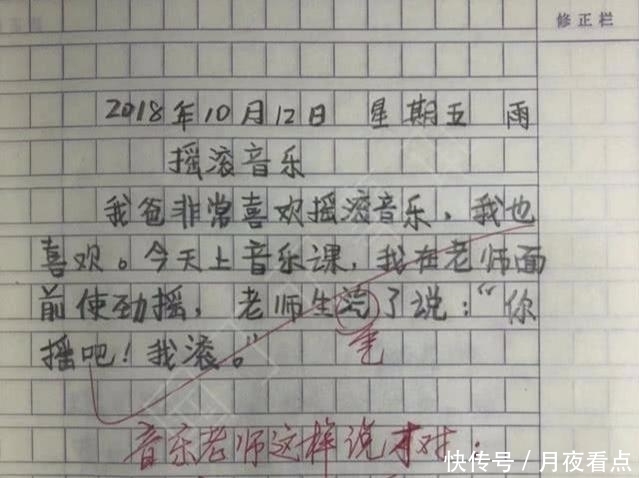 修正栏
2018年10月12日 星期五 雨
摇滚音乐
我爸非常喜欢摇滚音乐，我也
喜欢。今天上音乐课，我在老师面
前使劲摇，老师生汽了说：“你
摇吧！我滚。”
气
音乐老师这样说才对．
快传号／月夜看点